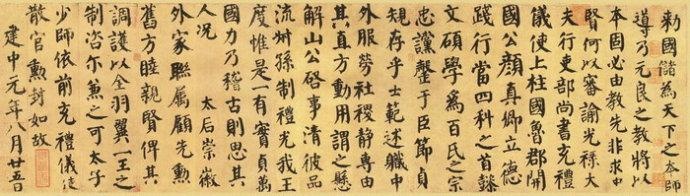 勑國儲為天下之本師
導乃元良之教將以
本固必由教先非求忠
賢何以審諭光祿大
夫行吏部尚書充禮
儀使上柱國魯郡開
國公顏真卿立德
踐行當四科之首懿
文碩學為百氏之宗
忠讜罄于臣節貞
規存乎士範述職中
外服勞社稷靜專由
其直方動用謂之懸
解山公啓事清彼品
流叔孫制禮光我王
度惟是一有實貞萬
國力乃稽古則思其
人況 太后崇徽
外家聯屬顧先勳
舊方睦親賢俾其
調護以全羽翼一王之
制咨尔兼之可太子
少師依前充禮儀使
散官勳封如故
建中元年八月廿五日